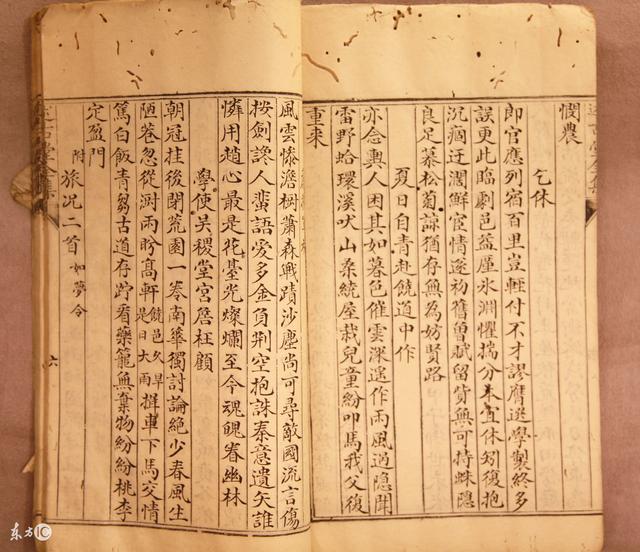 憫農
乞休
即官應列宿百里豈輕付不才謬膺選學製終多
誤更此臨劇邑益厪氷淵懼揣分本宜休矧復抱
沉痼迂濶鮮宦情遂初舊曾賦留貲無可持蛛隱
良足慕松菊諒猶存無為妨賢路
夏日自青赴饒道中作
亦念輿人困其如暮色催雲深遙作雨風過隱聞
雷野蛤環溪吠山桑統屋栽兒童紛叩馬我父復
重来
風雲慘澹樹蕭森戰蹟沙塵尚可尋敵國流言傷
按劍讒人蜚語愛多金負荆空抱誅秦意遺矢誰
憐用趙心最是花臺光燦爛至今魂餽眷幽林
學使吴稷堂宫詹枉顧
朝冠挂後閉荒園一卷南華獨討論絶少春風生
陋巷忽從澍雨盼髙軒饒邑久旱是日大雨掉車下馬交情
篤白飯青芻古道存跱看藥籠無棄物紛紛桃李
定盈門
附旅况二首如夢令
六
东方IC